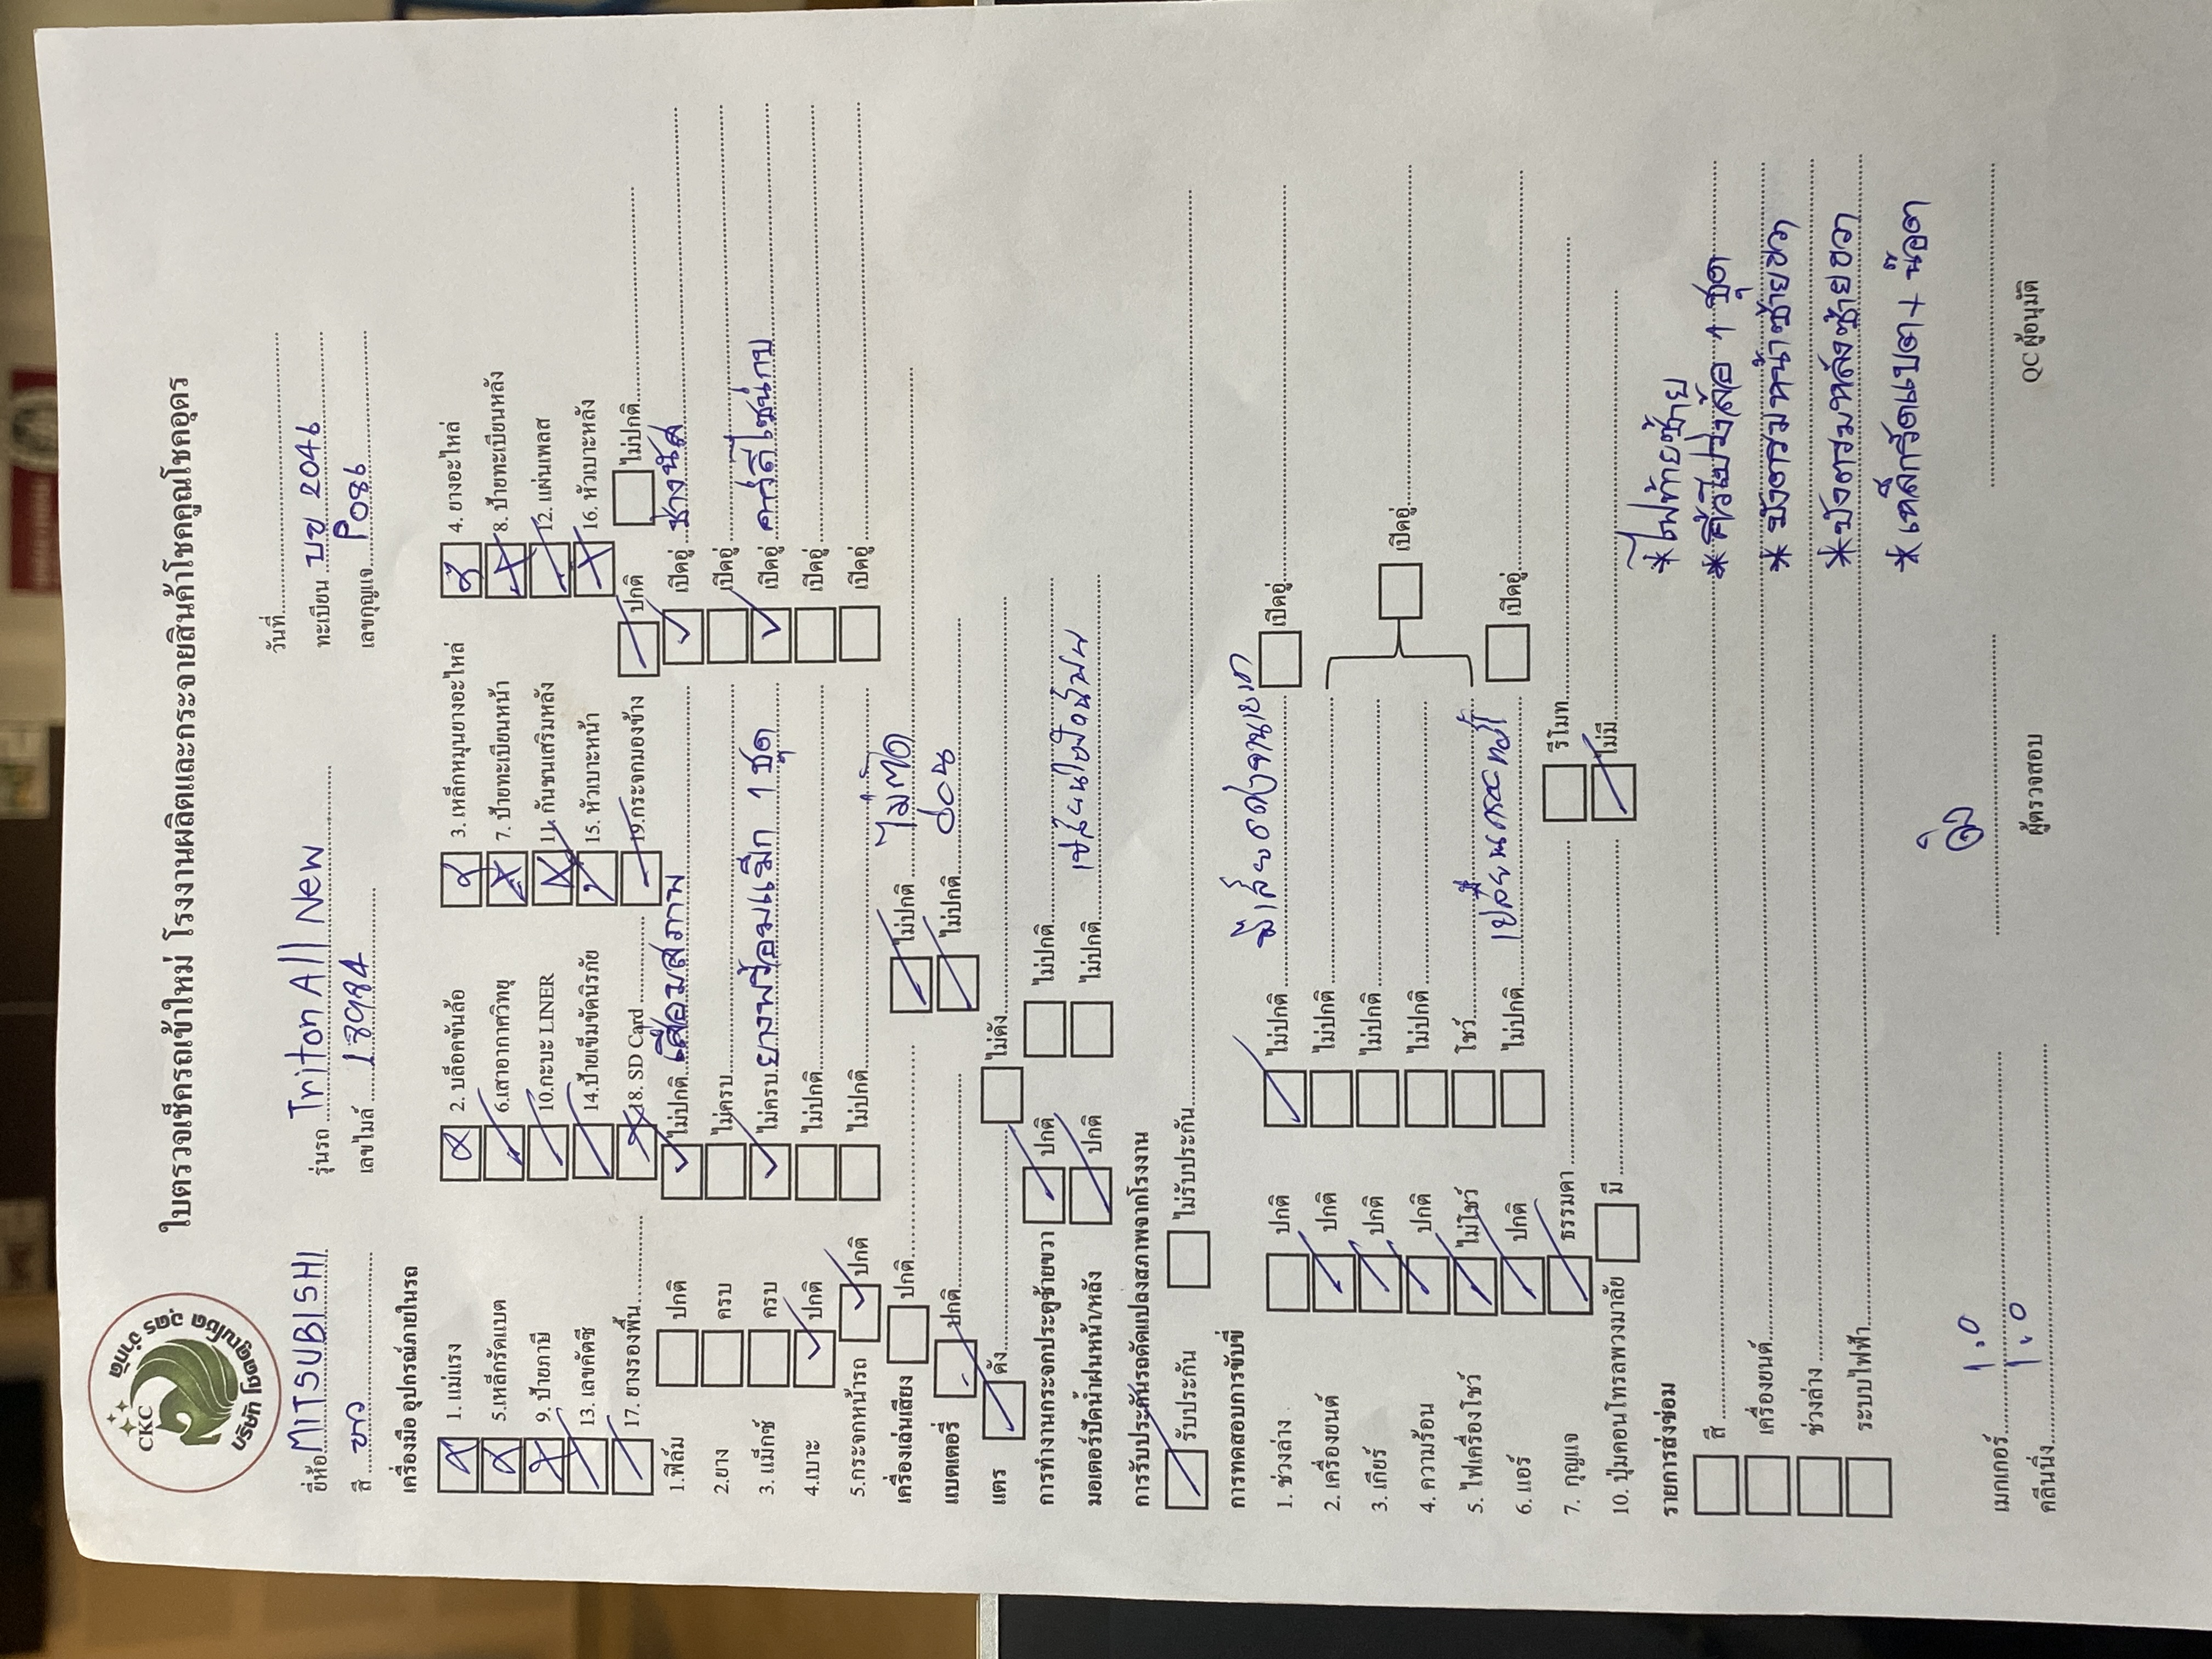 CKC
บริษัท โชคคูณโชค อุดร จำกัด
ใบตรวจเช็ครถเข้าใหม่ โรงงานผลิตและกระจายสินค้าโชคคูณโชคอุดร
วันที่
ยี่ห้อ MITSUBISHI รุ่นรถ Triton All New ทะเบียน บข 2046
สี ขาว เลขไมล์ 18984 เลขกุญแจ P086
เครื่องมือ อุปกรณ์ภายในรถ
1. แม่แรง 2. บล็อคขันล้อ 3. เหล็กหมุนยางอะไหล่ 4. ยางอะไหล่
5.เหล็กรัดแบต 6.เสาอากาศวิทยุ 7. ป้ายทะเบียนหน้า 8. ป้ายทะเบียนหลัง
9. ป้ายภาษี 10.กะบะ LINER 11. กันชนเสริมหลัง 12. แผ่นเพลส
13. เลขคัตซี 14.ป้ายเข็มขัดนิรภัย 15. หัวเบาะหน้า 16. หัวเบาะหลัง
17. ยางรองพื้น 18. SD Card 19.กระจกมองข้าง ปกติ ไม่ปกติ
1.ฟิล์ม ปกติ ไม่ปกติ เสื่อมสภาพ เบิคอู่ ช่างนัส
2.ยาง ครบ ไม่ครบ เบิคอู่
3. แม็กซ์ ครบ ไม่ครบ ยางพร้อมแม็ก 1 ชุด เบิคอู่ คาร์ดีไซน์กบ
4.เบาะ ปกติ ไม่ปกติ เบิคอู่
5.กระจกหน้ารถ ปกติ ไม่ปกติ เบิคอู่
เครื่องเล่นเสียง ปกติ ไม่ปกติ ไม่ติด
แบตเตอรี่ ปกติ ไม่ปกติ
แตร ดัง ไม่ดัง
การทำงานกระจกประตูซ้ายขวา ปกติ ไม่ปกติ
มอเตอร์ปัดน้ำฝนหน้า/หลัง ปกติ ไม่ปกติ
การรับประกันรถดัดแปลงสภาพจากโรงงาน
รับประกัน ไม่รับประกัน
การทดสอบการขับขี่
1. ช่วงล่าง ปกติ ไม่ปกติ เบิคอู่
2. เครื่องยนต์ ปกติ ไม่ปกติ
3. เกียร์ ปกติ ไม่ปกติ
4. ความร้อน ปกติ ไม่ปกติ เบิคอู่
5. ไฟเครื่องโชว์ ไม่โชว์ โชว์
6. แอร์ ปกติ ไม่ปกติ เบิคอู่
7. กุญแจ ธรรมดา รีโมท
10. ปุ่มคอนโทรลพวงมาลัย มี ไม่มี
รายการส่งซ่อม
* ไฟท้ายซ้าย
สี * คิ้วโป่งล้อ 1 ชุด
เครื่องยนต์ * บังตรมหน้าซ้ายขวา
ช่วงล่าง * บังตรมหลังซ้ายขวา
ระบบไฟฟ้า * เหล็กรัดแบต + น๊อต
เมกเกอร์ 1.0
คลีนนิ่ง 1.0
ผู้ตรวจสอบ QC ผู้อนุมัติ